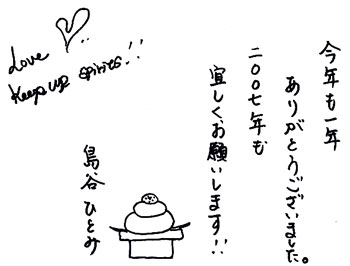 今年も一年
ありがとうございました。
二〇〇七年も
宜しくお願いします!!
島谷ひとみ
Love
Keep up spirits!!